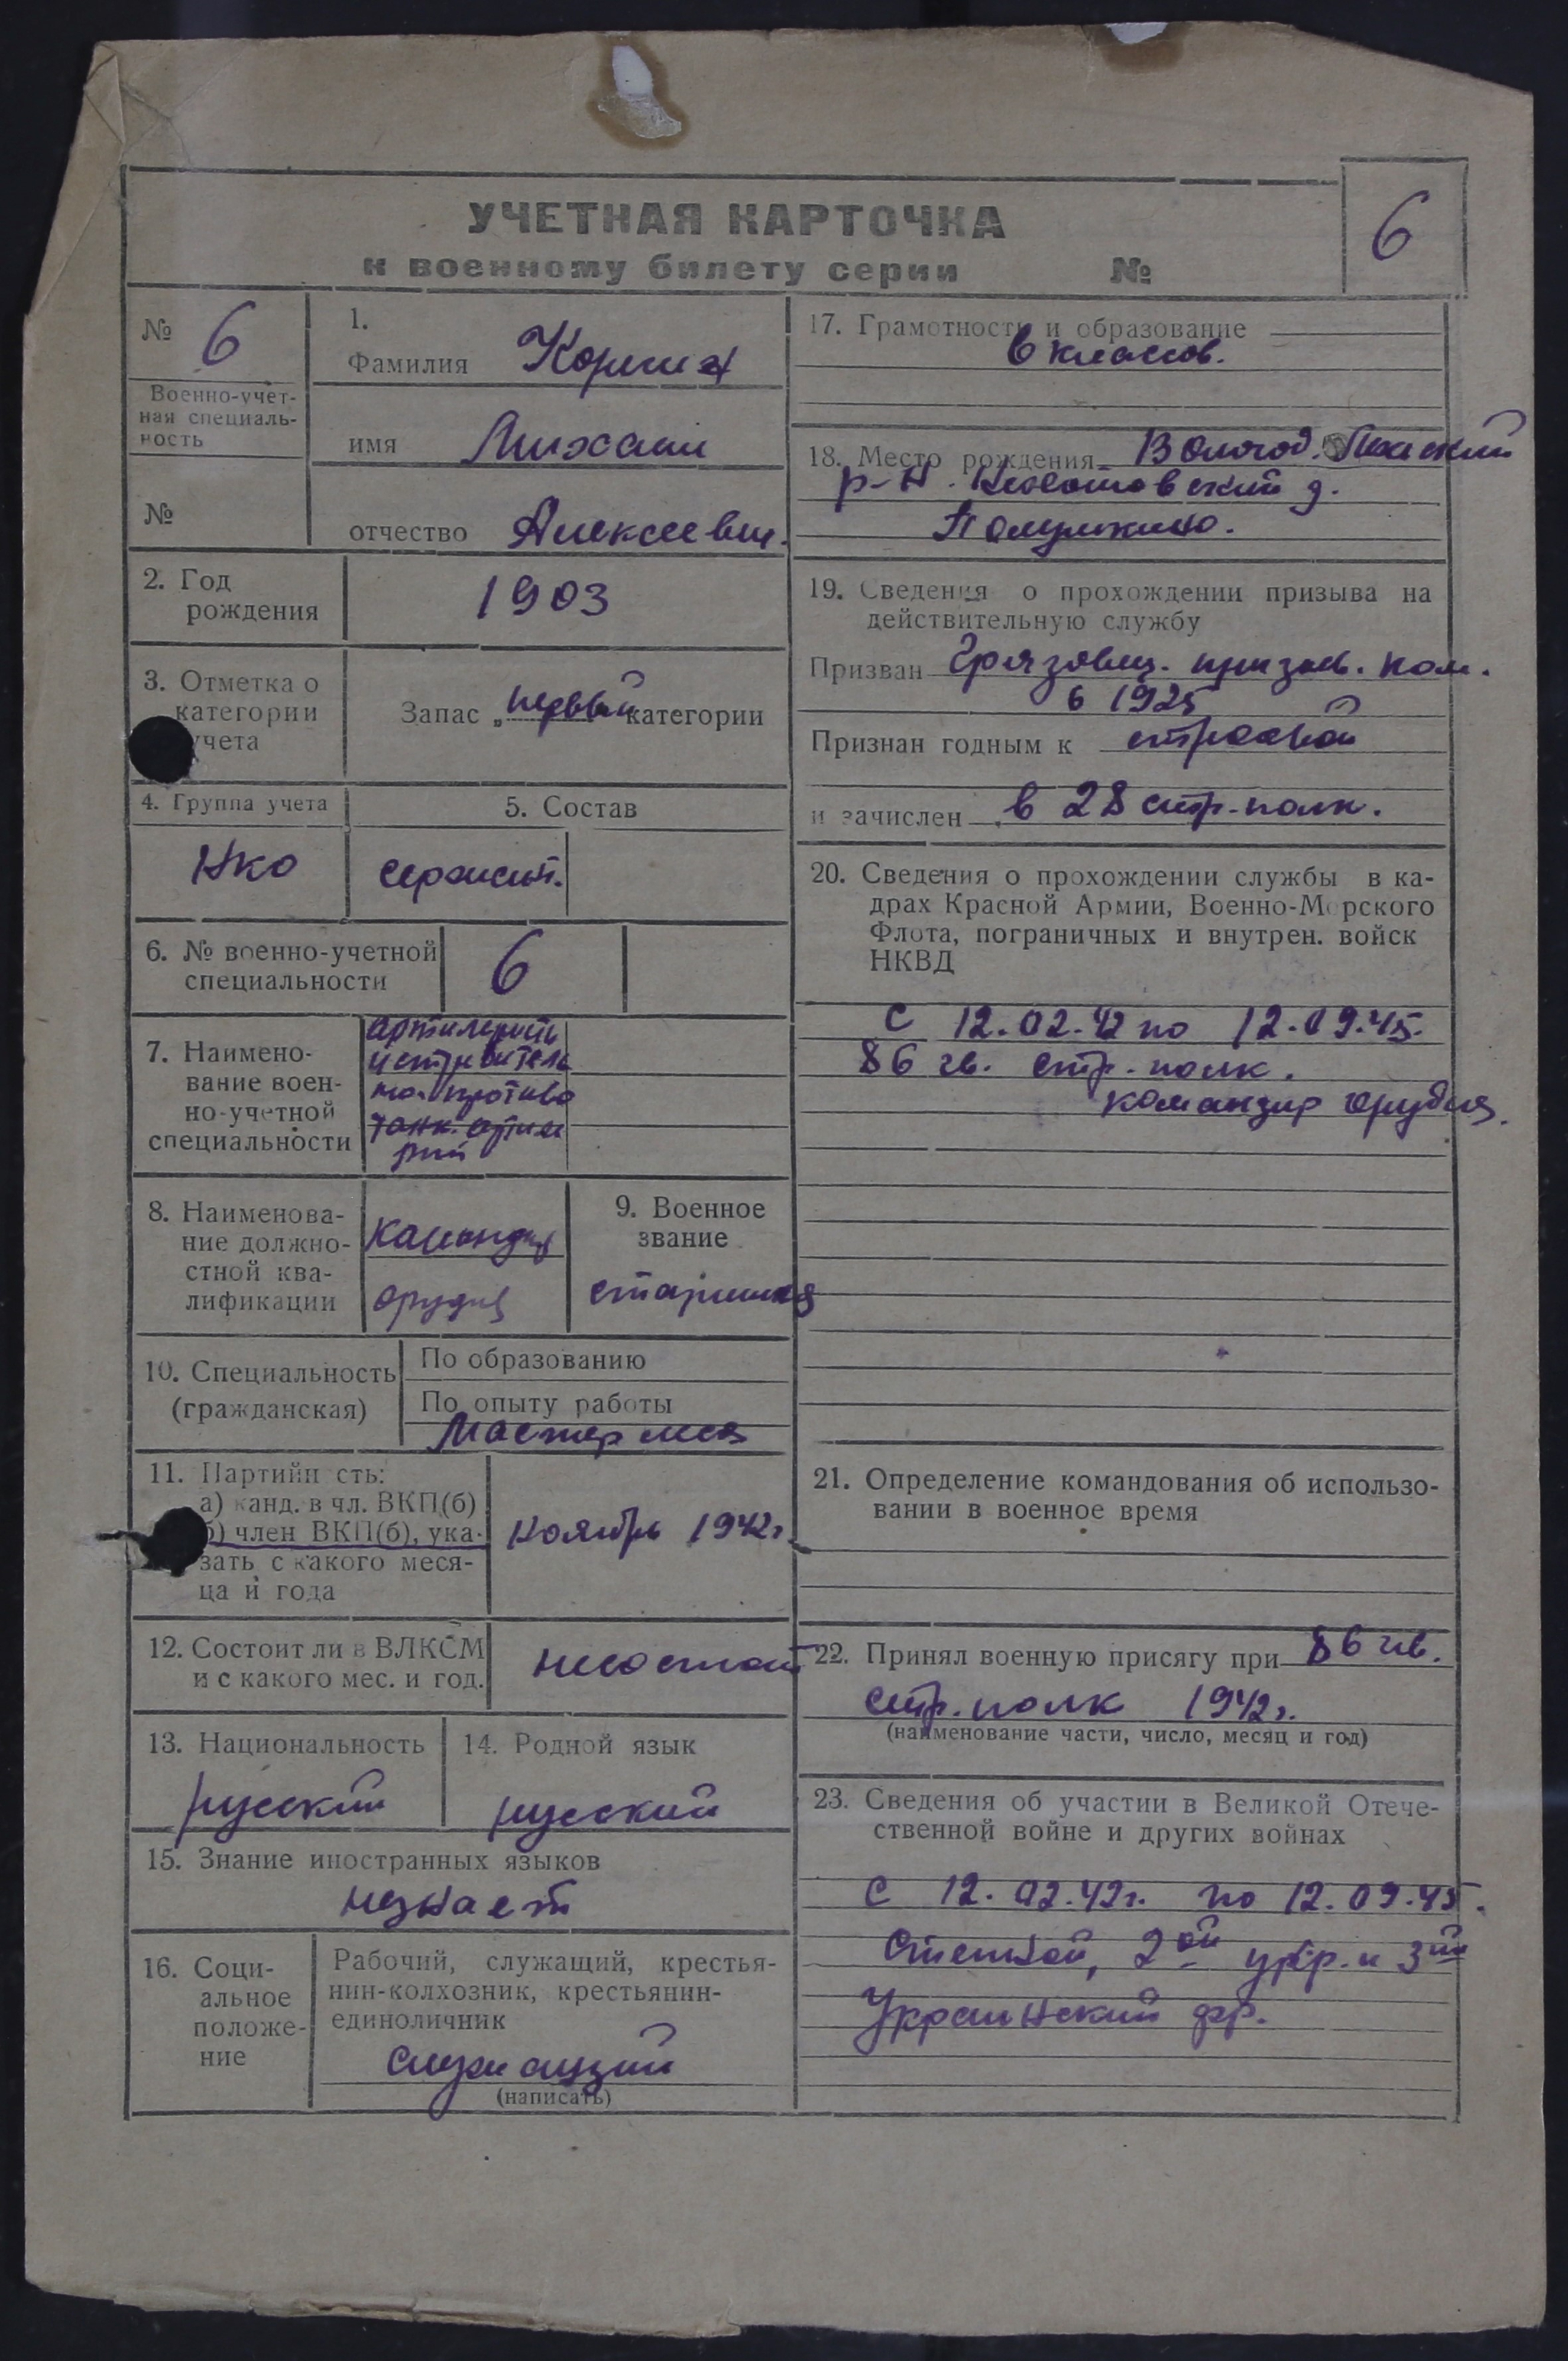 УЧЕТНАЯ КАРТОЧКА
к военному билету серии №
6
№ 6
Военно-учет-
ная специаль-
ность
№
1.
Фамилия Коркин
имя Михаил
отчество Алексеевич.
2. Год
рождения
1903
3. Отметка о
категории
учета
Запас „первый категории
4. Группа учета
НКО
5. Состав
сержант.
6. № военно-учетной
специальности
6
7. Наимено-
вание воен-
но-учетной
специальности
артилерист
истребитель
но-противо
танк. артиле
рии
8. Наименова-
ние должно-
стной ква-
лификации
командир
орудия
9. Военное
звание
старшина
10. Специальность
(гражданская)
По образованию
По опыту работы
Мастер леса
11. Партийн сть:
а) канд. в чл. ВКП(б)
б) член ВКП(б), ука-
зать с какого меся-
ца и года
Ноябрь 1942г.
12. Состоит ли в ВЛКСМ
и с какого мес. и год.
несостоит
13. Национальность
русский
14. Родной язык
русский
15. Знание иностранных языков
незнает
16. Соци-
альное
положе-
ние
Рабочий, служащий, крестья-
нин-колхозник, крестьянин-
единоличник
служащий
(написать)
17. Грамотность и образование
6 классов.
18. Место рождения Вологод.
р-н. д.
19. Сведения о прохождении призыва на
действительную службу
Призван Грязовец. призыв. ком.
в 1925
Признан годным к строевой
и зачислен в 28 стр. полк.
20. Сведения о прохождении службы в ка-
драх Красной Армии, Военно-Морского
Флота, пограничных и внутрен. войск
НКВД
С 12.02.42 по 12.09.45.
86 гв. стр. полк.
командир орудия.
21. Определение командования об использо-
вании в военное время
22. Принял военную присягу при 86 гв.
стр. полк 1942г.
(наименование части, число, месяц и год)
23. Сведения об участии в Великой Отече-
ственной войне и других войнах
С 12.02.42г. по 12.09.45.
Степной, 2ой укр. и 3ий
Украинский фр.